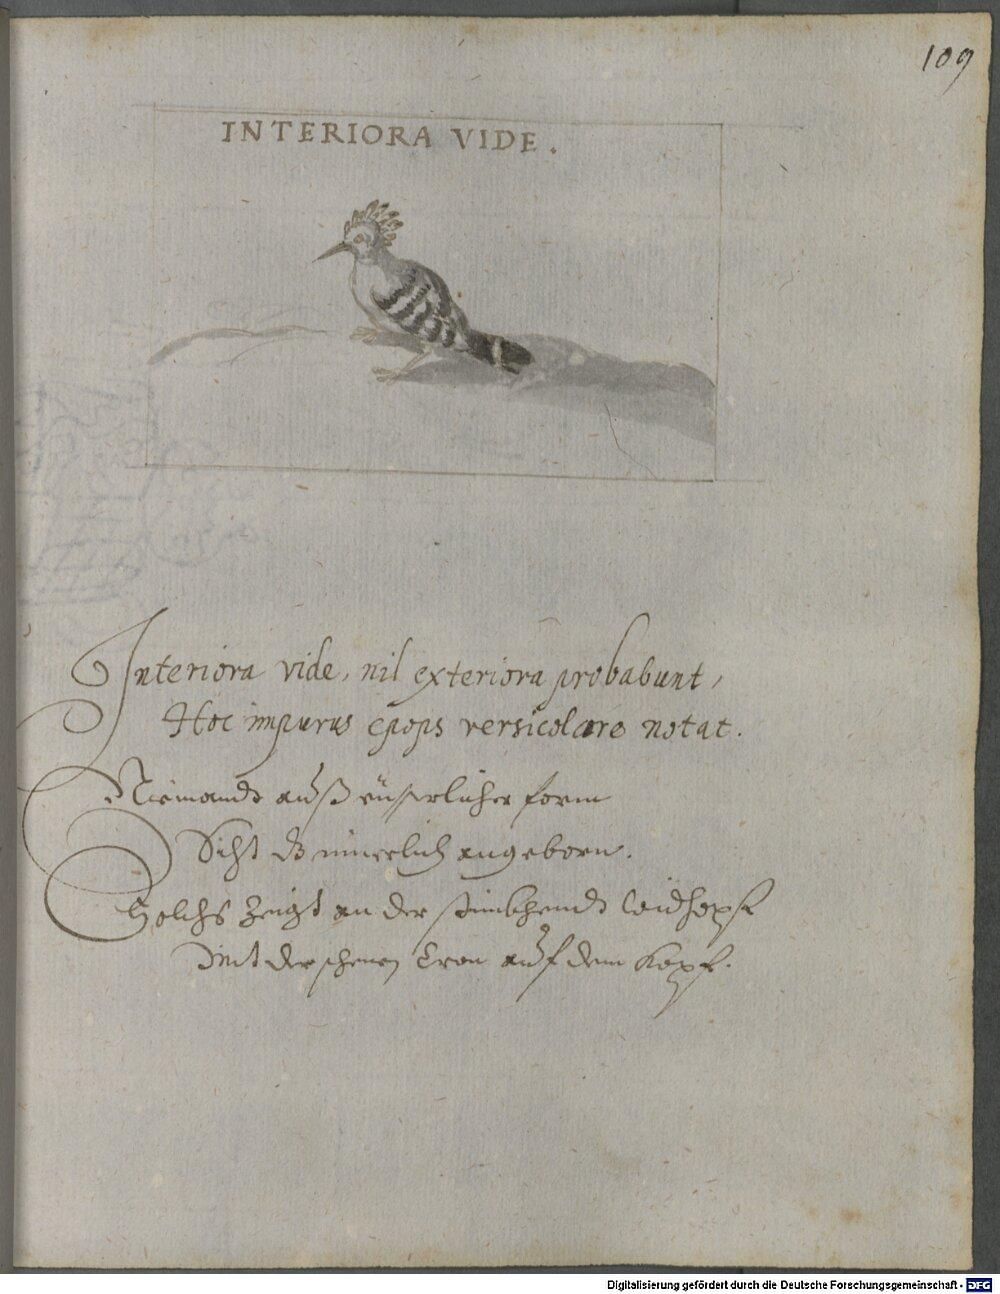 109
INTERIORA VIDE.
Interiora vide, nil exteriora probabunt,
Hoc impurus epops versicolore notat.
Niemandt auß eüsserlicher form
Sicht dz innerlich angeborn.
Solchs zeigt an der stinckhendt Widhopf
Mit der schenen Cron auf dem Kopf.
Digitalisierung gefördert durch die Deutsche Forschungsgemeinschaft - DFG